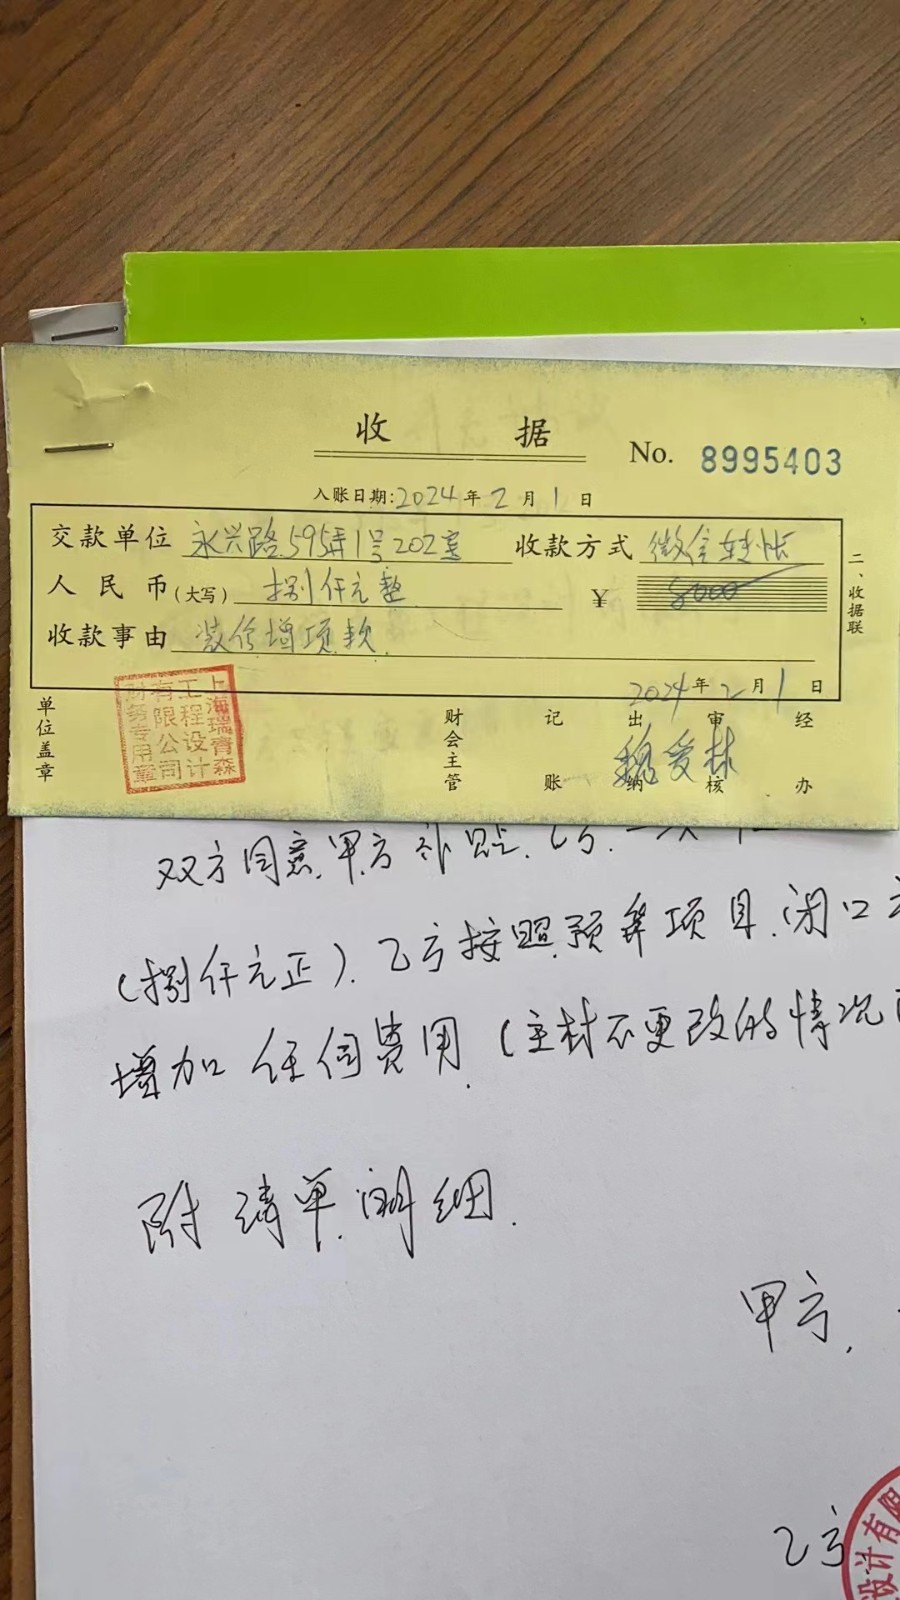 收 据
No. 8995403
入账日期:2024年2月1日
交款单位 永兴路595弄1号202室 收款方式 微信转帐
人民币(大写) 捌仟元整 ¥ 8000
收款事由 装修增项款
二、收据联
2024年2月1日
单位盖章 财会主管 记账 出纳 审核 经办
魏爱林
上海瑞霄森
工程设计
有限公司
财务专用章
双方同意.甲方补贴.乙方.一次
(捌仟元正).乙方按照预算项目.闭口
增加任何费用.(主材不更改的情况
附清单.明细.
甲方.
乙方
设计有限